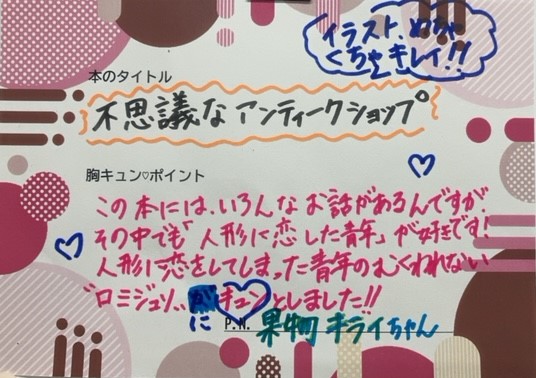 イラスト、めちゃ
くちゃキレイ!!
本のタイトル
不思議なアンティークショップ
胸キュン♡ポイント
この本には、いろんなお話があるんですが、
その中でも「人形に恋した青年」が好きです!
人形に恋をしてしまった青年のむくわれない
"ロミジュリ"
に
キュンとしました!!
P.N. 果物キライちゃん